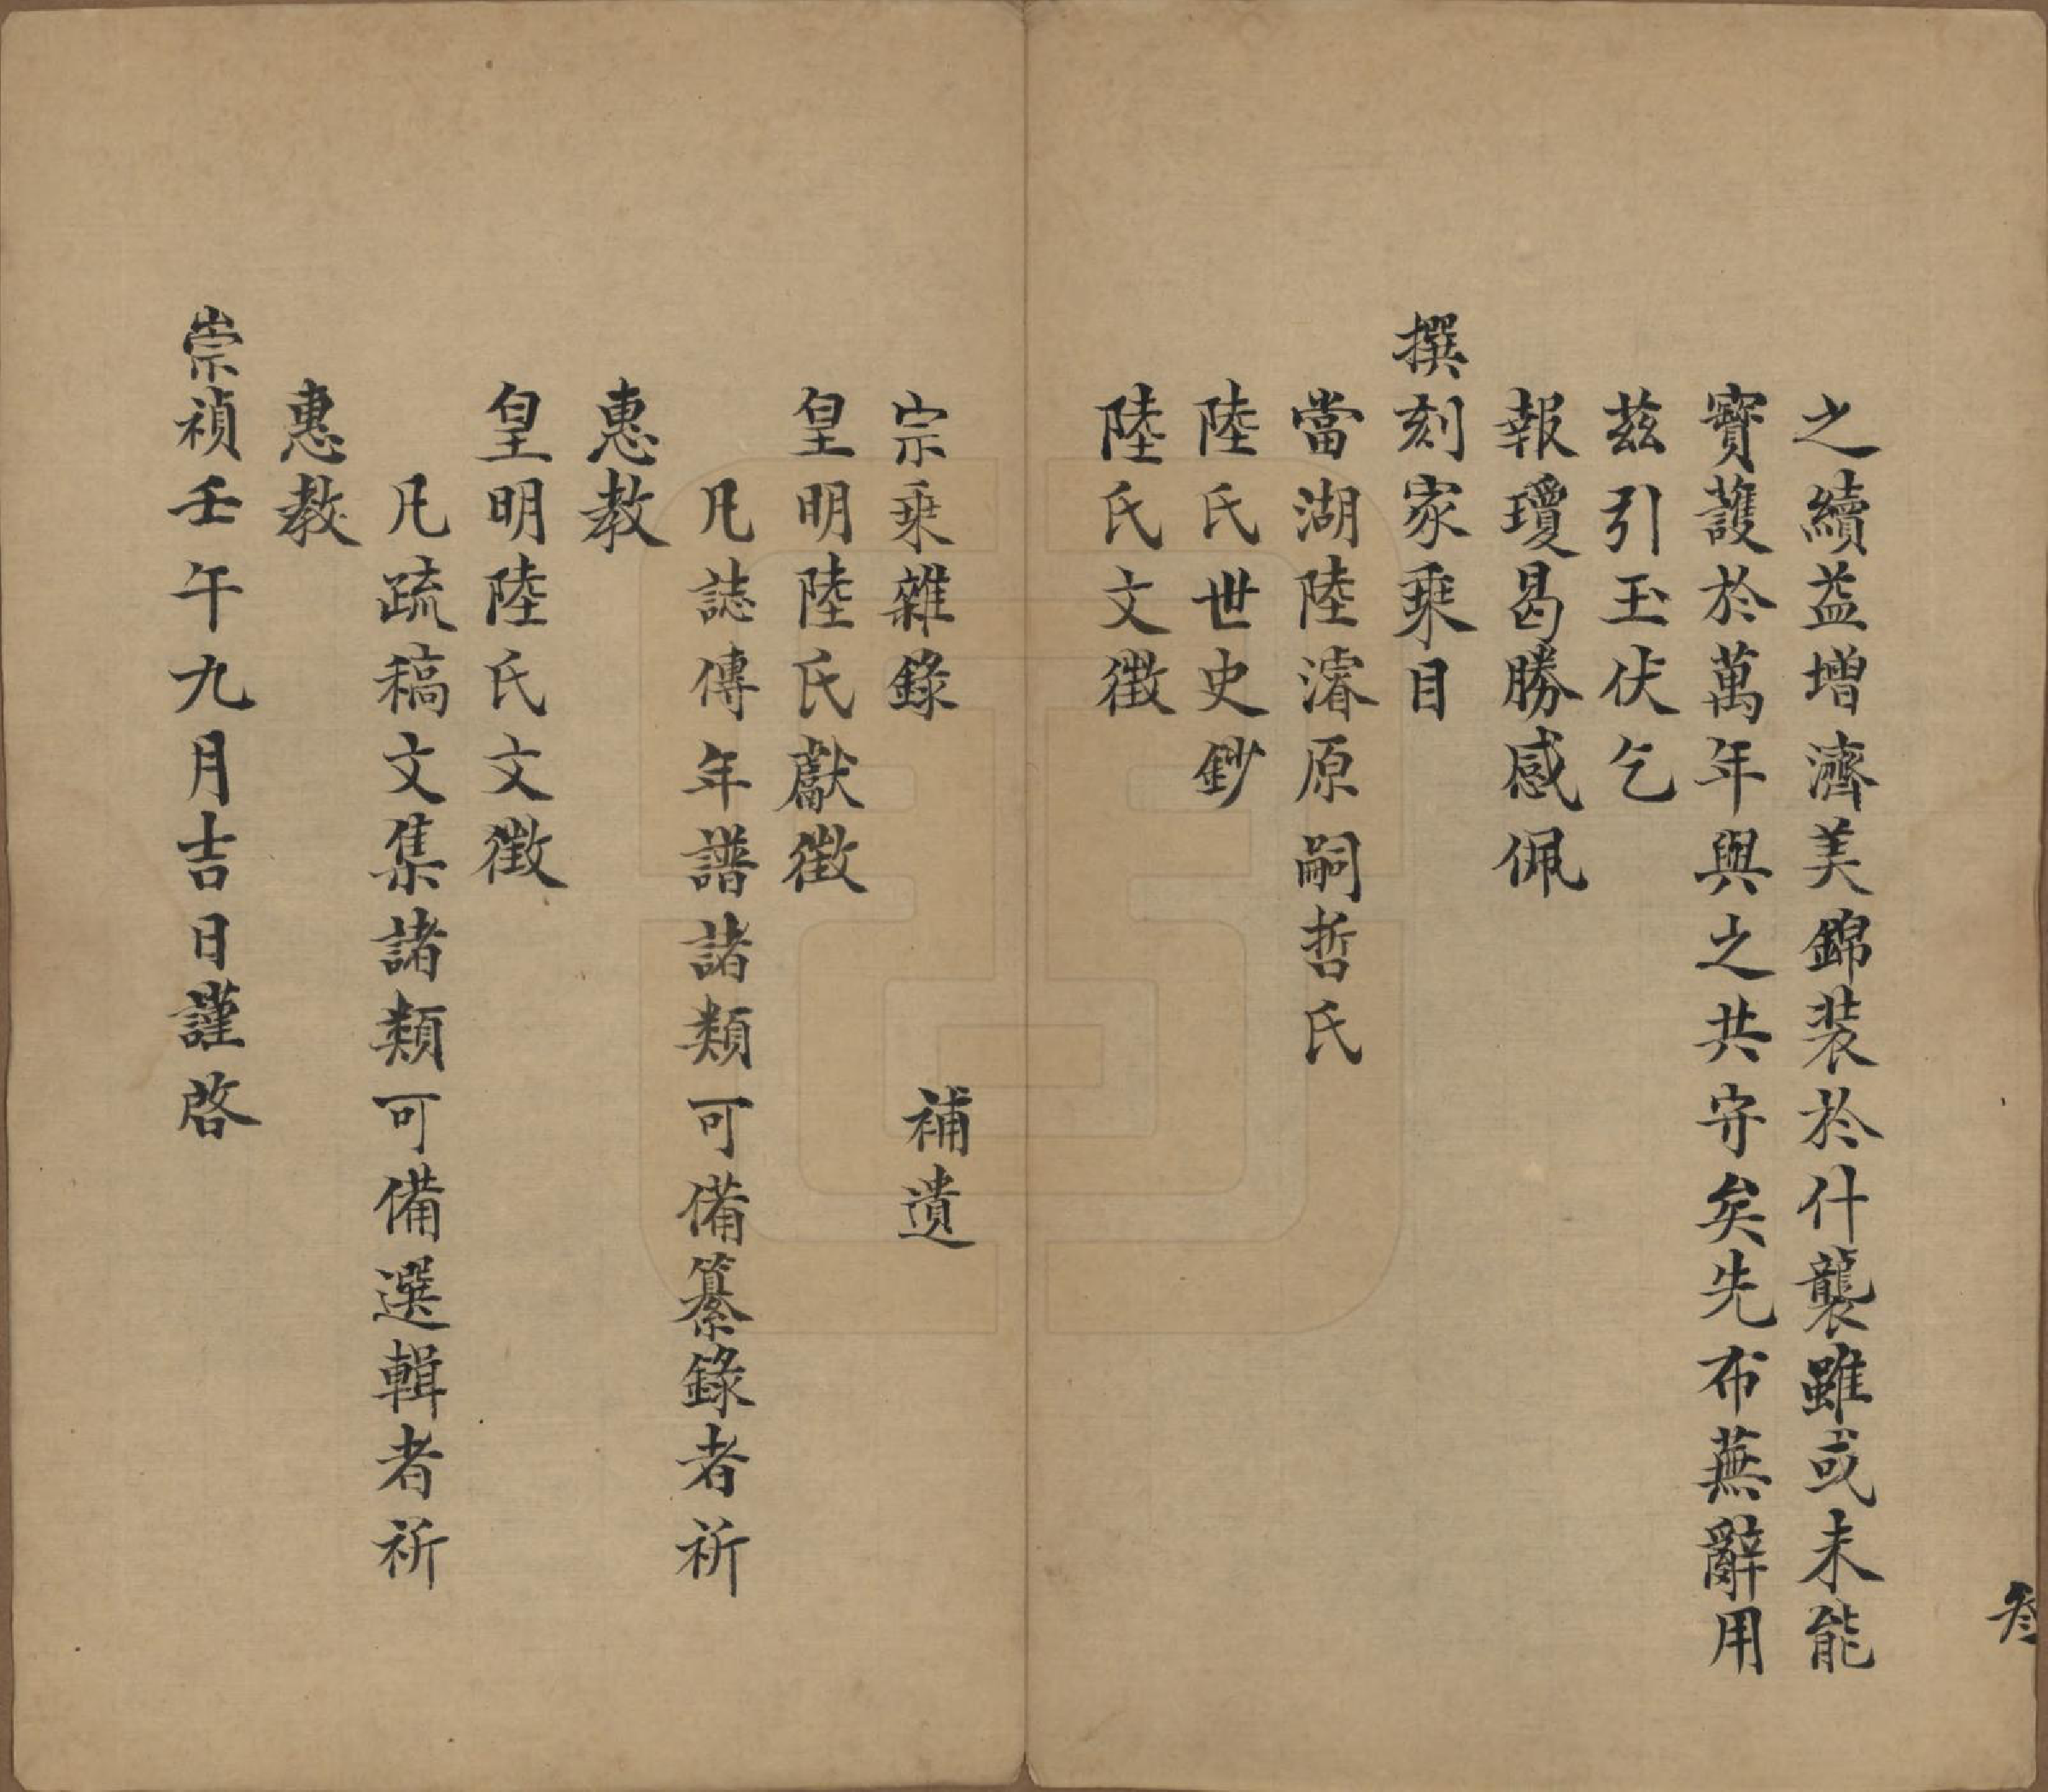 之續益增濟美錦裝於什襲雖或未能
寶護於萬年與之共守矣先布蕪辭用
茲引玉伏乞
報瓊曷勝感佩
撰刻家乘目
當湖陸濬原嗣哲氏
陸氏世史鈔
陸氏文徵
宗乘雜錄 補遺
皇明陸氏獻徵
凡誌傳年譜諸類可備纂錄者祈
惠教
皇明陸氏文徵
凡疏稿文集諸類可備選輯者祈
惠教
崇禎壬午九月吉日謹啓